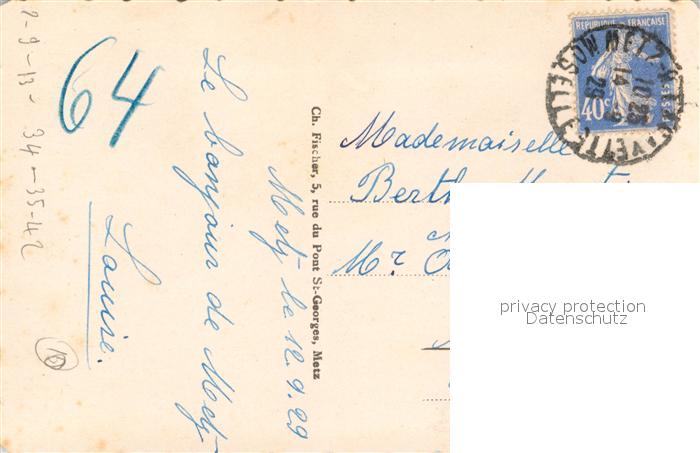 2-9-13-34-35-42
64
Metz le 12.9.29
Le bonjour de Metz
Louise.
Ch. Fischer, 5, rue du Pont St-Georges, Metz
REPUBLIQUE FRANÇAISE
POSTES
40c
METZ
14
10 30
29
MOSELLE
Mademoiselle
Berthe
Mr
privacy protection
Datenschutz